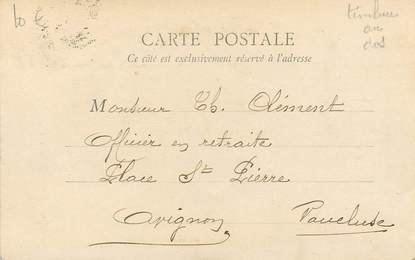 timbre
au
dos
CARTE POSTALE
Ce côté est exclusivement réservé à l'adresse
Monsieur Th. Clément
Officier en retraite
Place St Pierre
Avignon Vaucluse